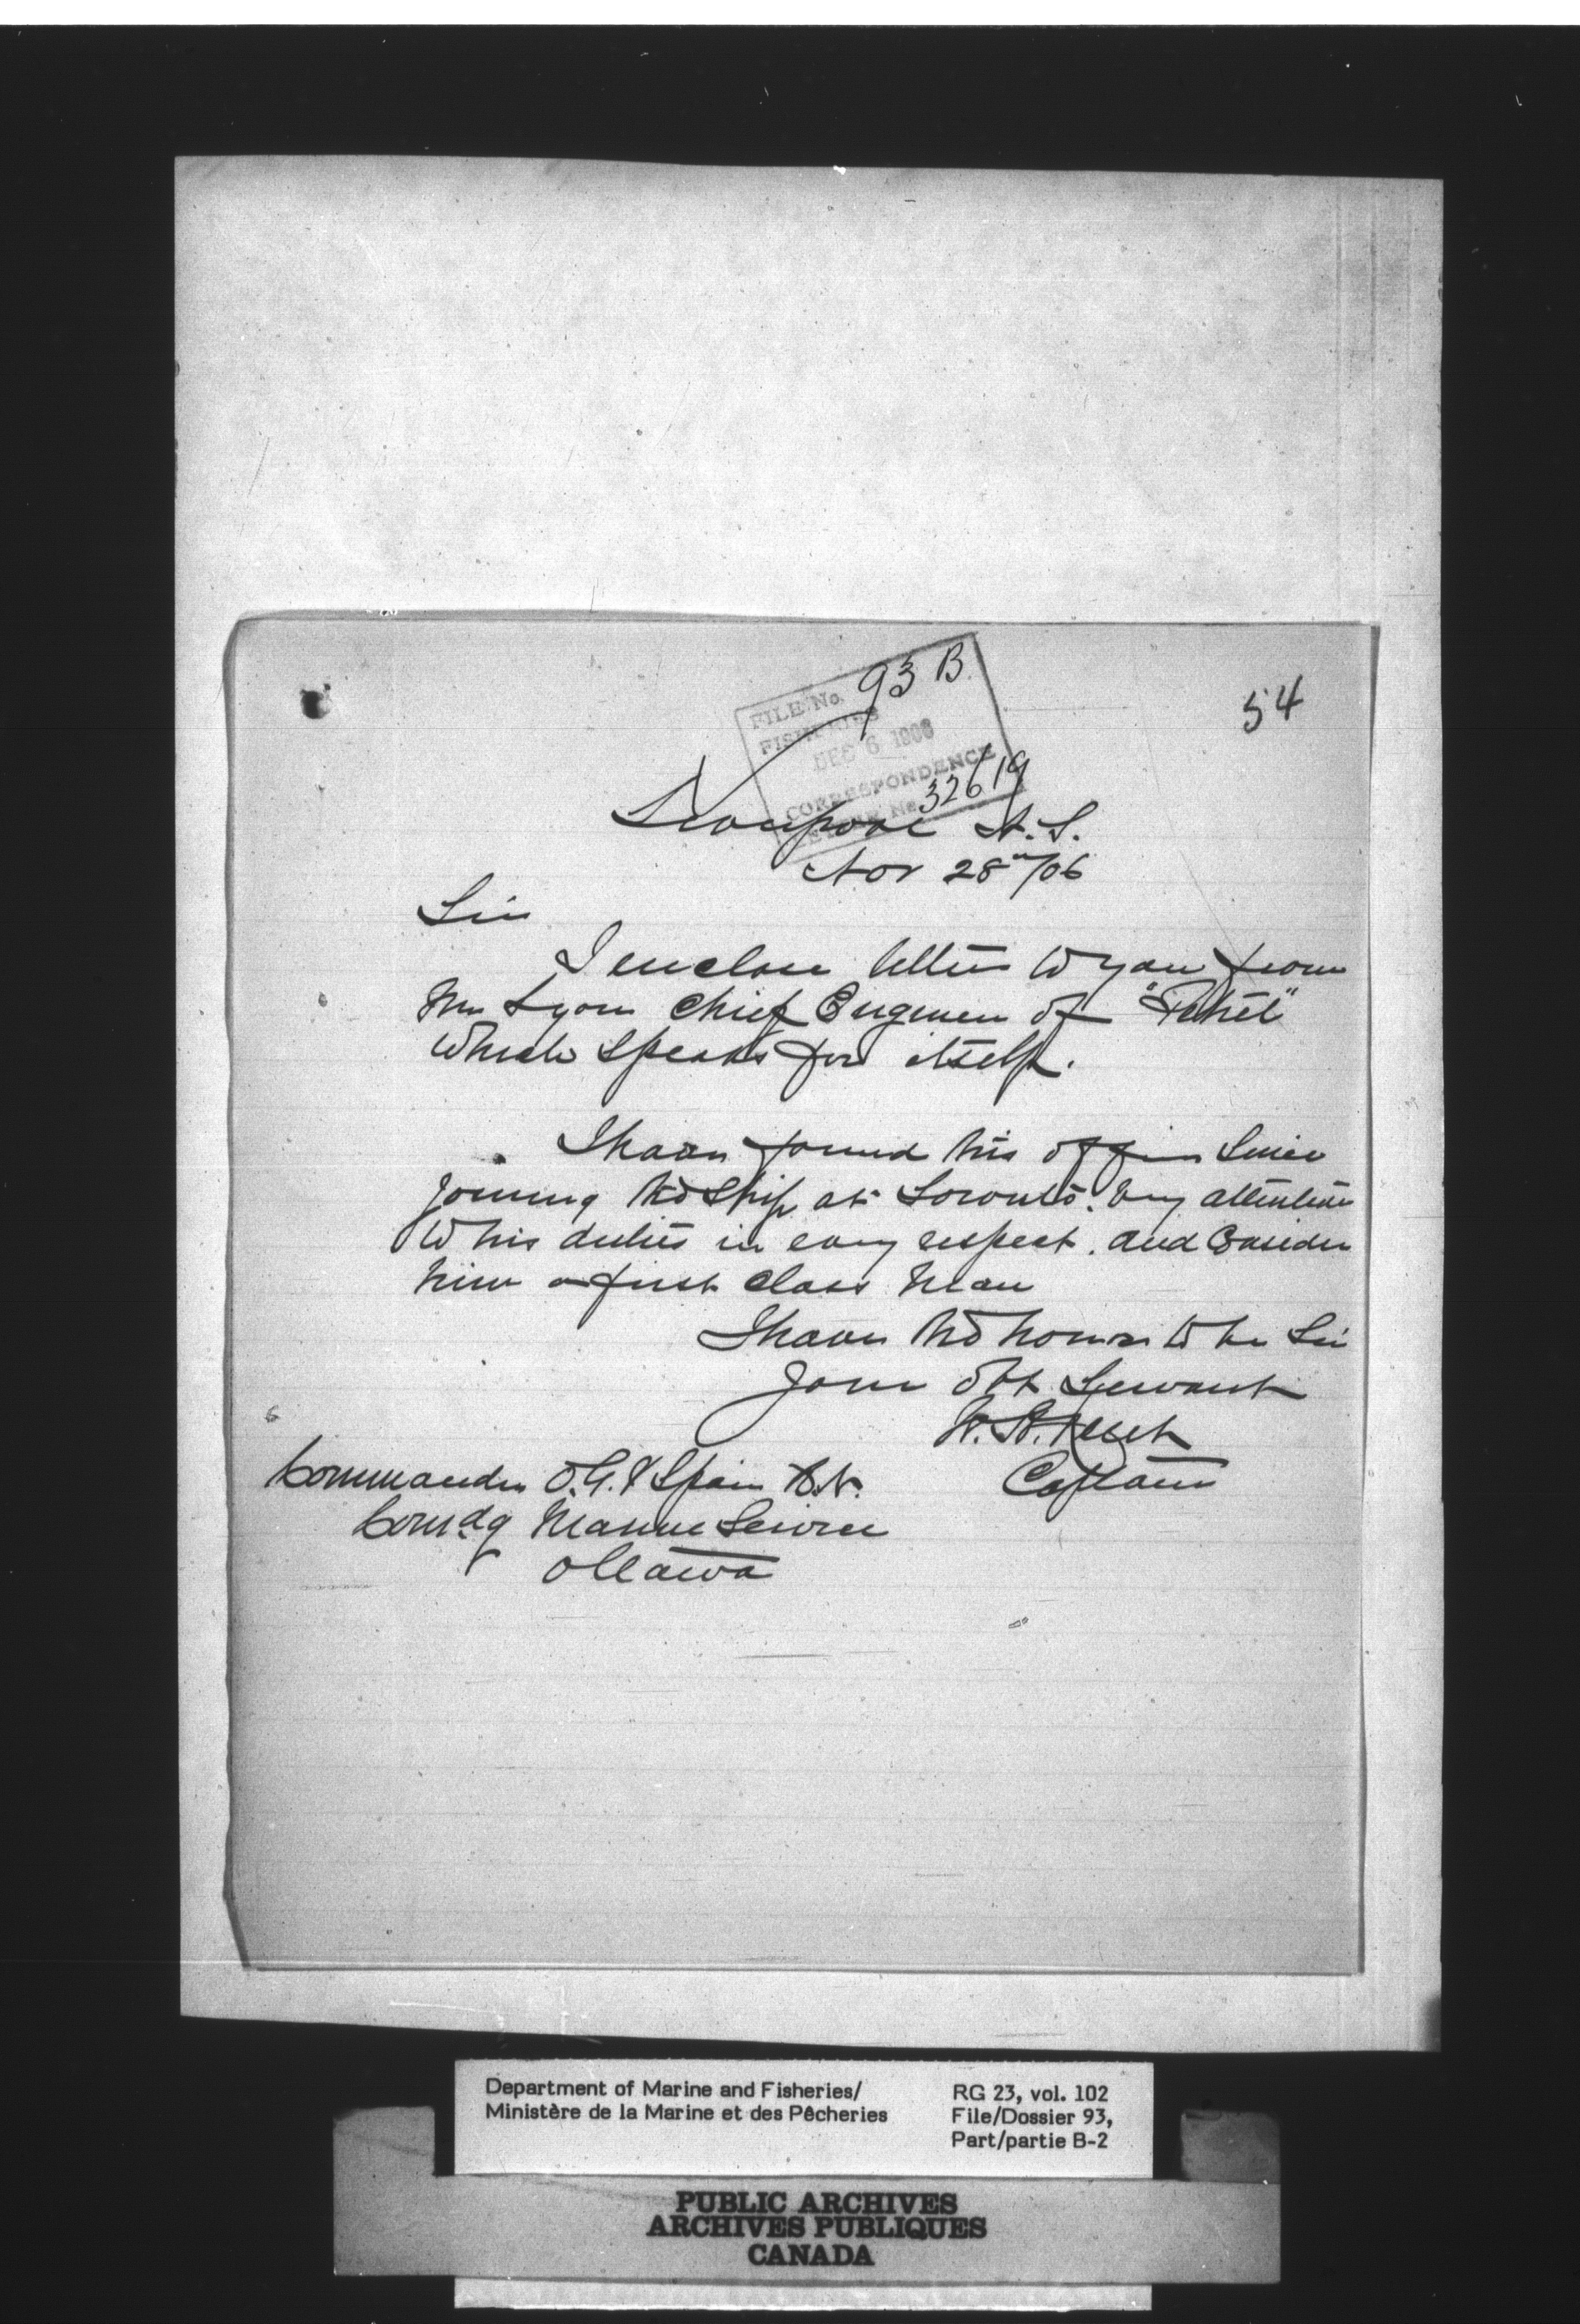 93 B
54
FILE No.
FISHERIES
DEC 6 1906
CORRESPONDENCE
No 32619
Liverpool N.S.
Nov 28th/06
Sir
I enclose letter to you from
Mr Lyon Chief Engineer of "Petrel"
which speaks for itself.
I have found this officer since
joining the ship at Toronto. very attentive
to his duties in every respect. and Consider
him a first class man
I have the honor to be Sir
Your Obt Servant
Captain
Commander O.G.V Spain R.N.
Comdg Marine Service
Ottawa
Department of Marine and Fisheries/
Ministère de la Marine et des Pêcheries
RG 23, vol. 102
File/Dossier 93,
Part/partie B-2
PUBLIC ARCHIVES
ARCHIVES PUBLIQUES
CANADA